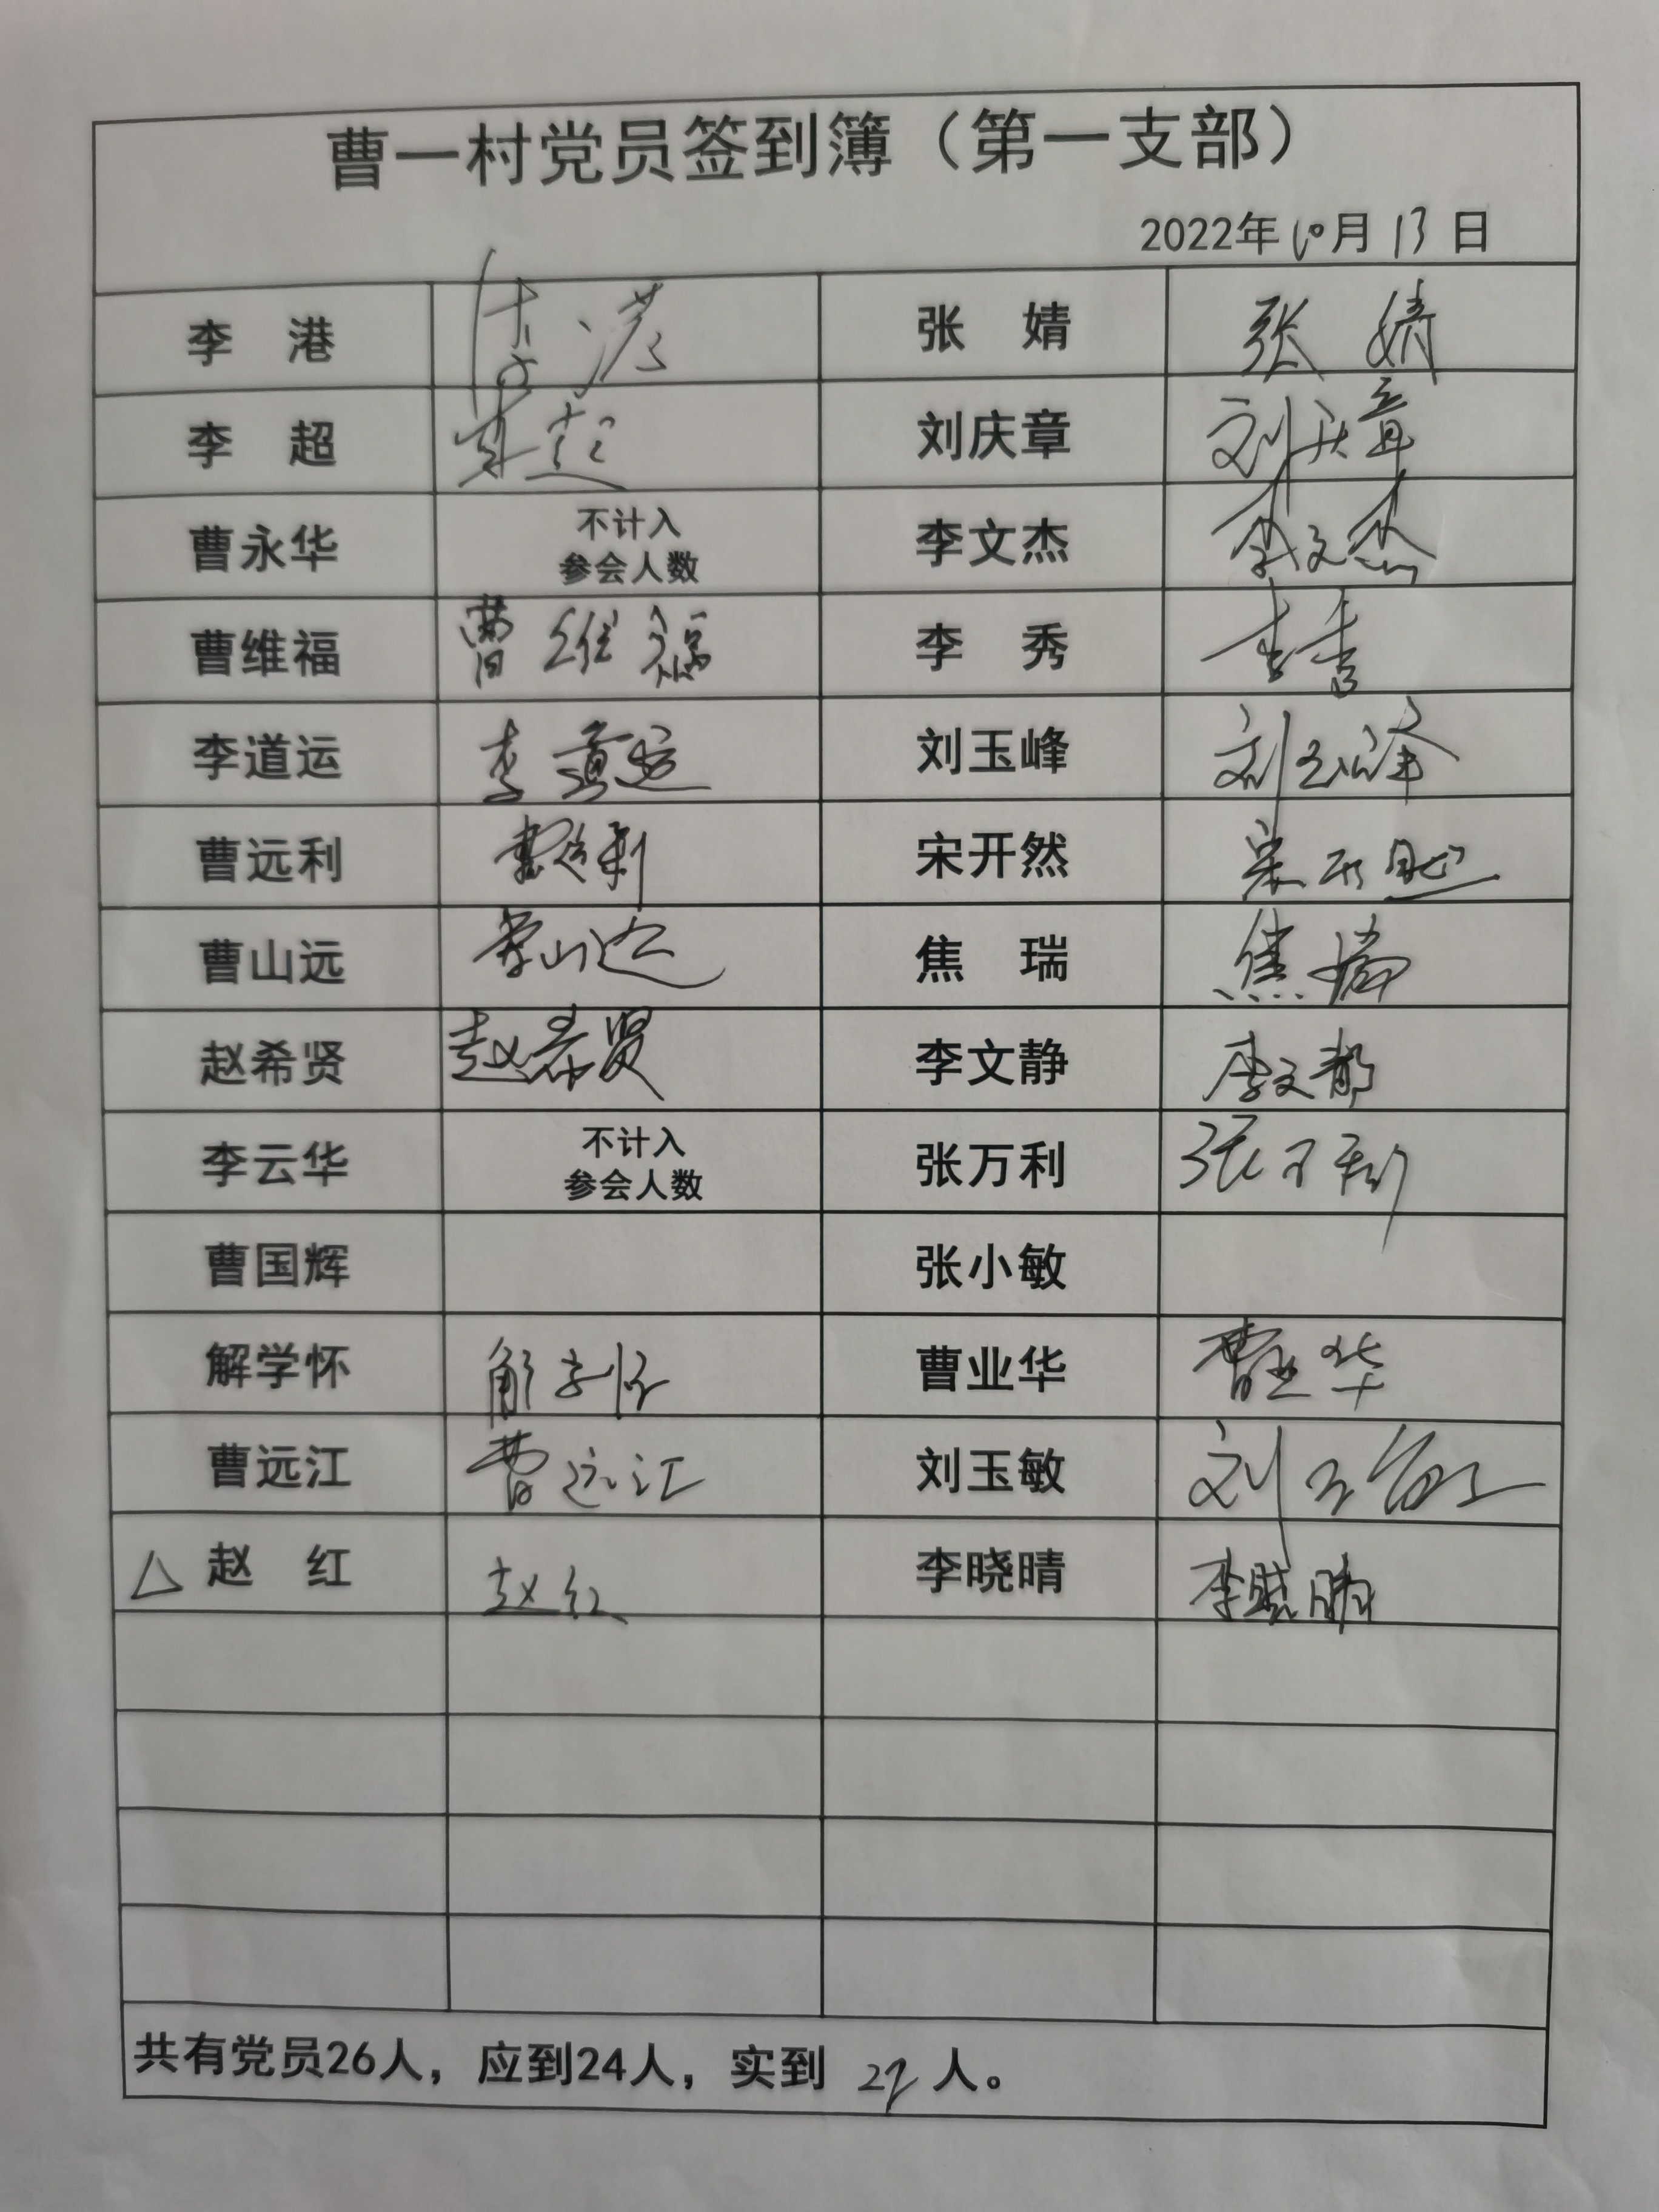 曹一村党员签到簿（第一支部）
2022年10月13日
李 港 李港 张 婧 张婧
李 超 李超 刘庆章 刘庆章
曹永华 不计入 参会人数 李文杰 李文杰
曹维福 曹维福 李 秀 李秀
李道运 李道运 刘玉峰 刘玉峰
曹远利 曹远利 宋开然 宋开然
曹山远 曹山远 焦 瑞 焦瑞
赵希贤 赵希贤 李文静 李文静
李云华 不计入 参会人数 张万利 张万利
曹国辉 张小敏
解学怀 解学怀 曹业华 曹业华
曹远江 曹远江 刘玉敏 刘玉敏
△ 赵 红 赵红 李晓晴 李晓晴
共有党员26人，应到24人，实到 人。